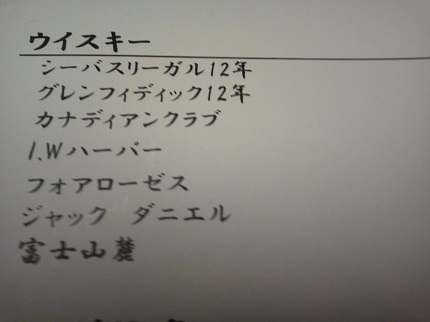 ウイスキー
シーバスリーガル12年
グレンフィディック12年
カナディアンクラブ
I.Wハーパー
フォアローゼス
ジャック ダニエル
富士山麓